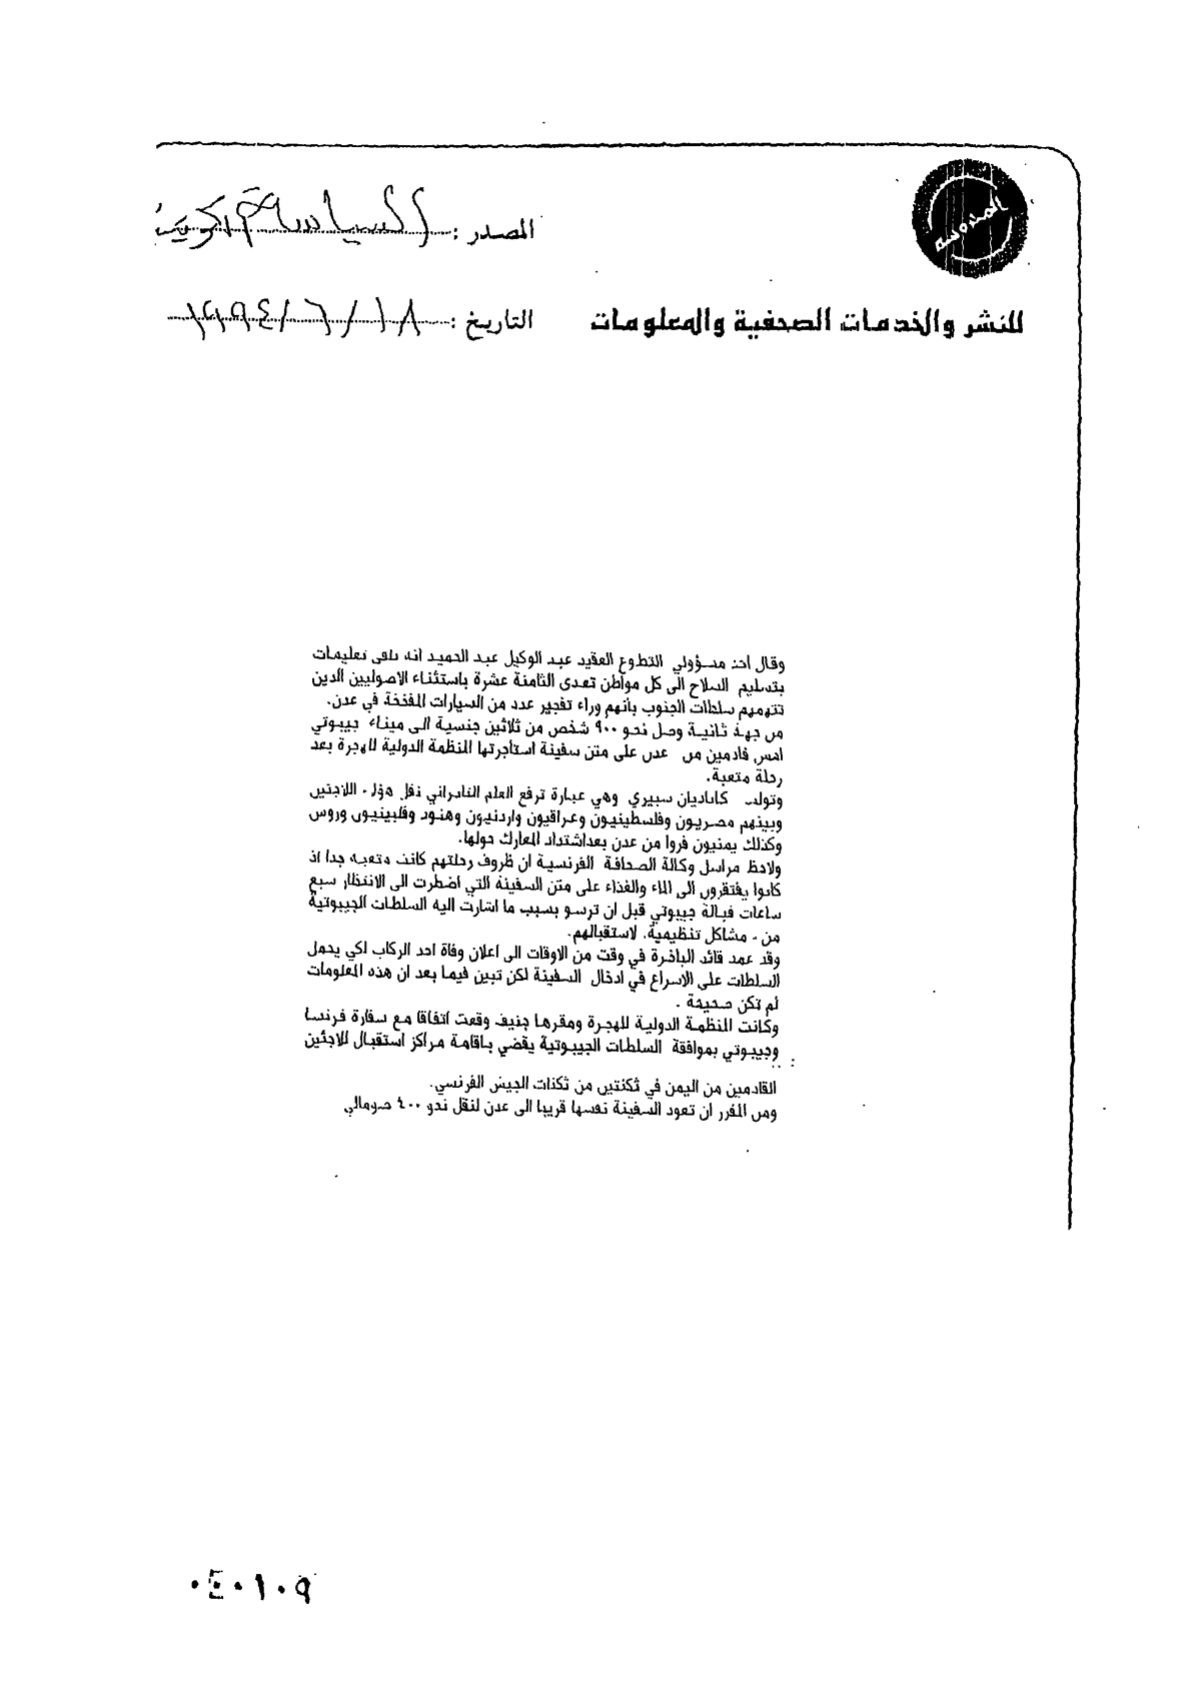 المحروسة
المصدر : السياسة الكويتية
للنشر والخدمات الصحفية والمعلومات
التاريخ : ١٨ / ٦ / ١٩٩٤
وقال احد مسؤولي التطوع العقيد عبد الوكيل عبد الحميد انه تلقى تعليمات
بتسليم السلاح الى كل مواطن تعدى الثامنة عشرة باستثناء الاصوليين الذين
تتهمهم سلطات الجنوب بانهم وراء تفجير عدد من السيارات المفخخة في عدن.
من جهة ثانية وصل نحو ٩٠٠ شخص من ثلاثين جنسية الى ميناء جيبوتي
امس قادمين من عدن على متن سفينة استأجرتها المنظمة الدولية للهجرة بعد
رحلة متعبة.
وتولت سبيري وهي عبارة ترفع العلم نقل هؤلاء اللاجئين
وبينهم مصريون وفلسطينيون وعراقيون واردنيون وهنود وفلبينيون وروس
وكذلك يمنيون فروا من عدن بعداشتداد المعارك حولها.
ولاحظ مراسل وكالة الصحافة الفرنسية ان ظروف رحلتهم كانت متعبه جدا اذ
كانوا يفتقرون الى الماء والغذاء على متن السفينة التي اضطرت الى الانتظار سبع
ساعات قبالة جيبوتي قبل ان ترسو بسبب ما اشارت اليه السلطات الجيبوتية
من - مشاكل تنظيمية. لاستقبالهم.
وقد عمد قائد الباخرة في وقت من الاوقات الى اعلان وفاة احد الركاب لكي يحمل
السلطات على الاسراع في ادخال السفينة لكن تبين فيما بعد ان هذه المعلومات
لم تكن صحيحة .
وكانت المنظمة الدولية للهجرة ومقرها جنيف وقعت اتفاقا مع سفارة فرنسا
وجيبوتي بموافقة السلطات الجيبوتية يقضي باقامة مراكز استقبال للاجئين
القادمين من اليمن في ثكنتين من ثكنات الجيش الفرنسي.
ومن المقرر ان تعود السفينة نفسها قريبا الى عدن لنقل نحو ٤٠٠ صومالي
٠٤٠١٠٩